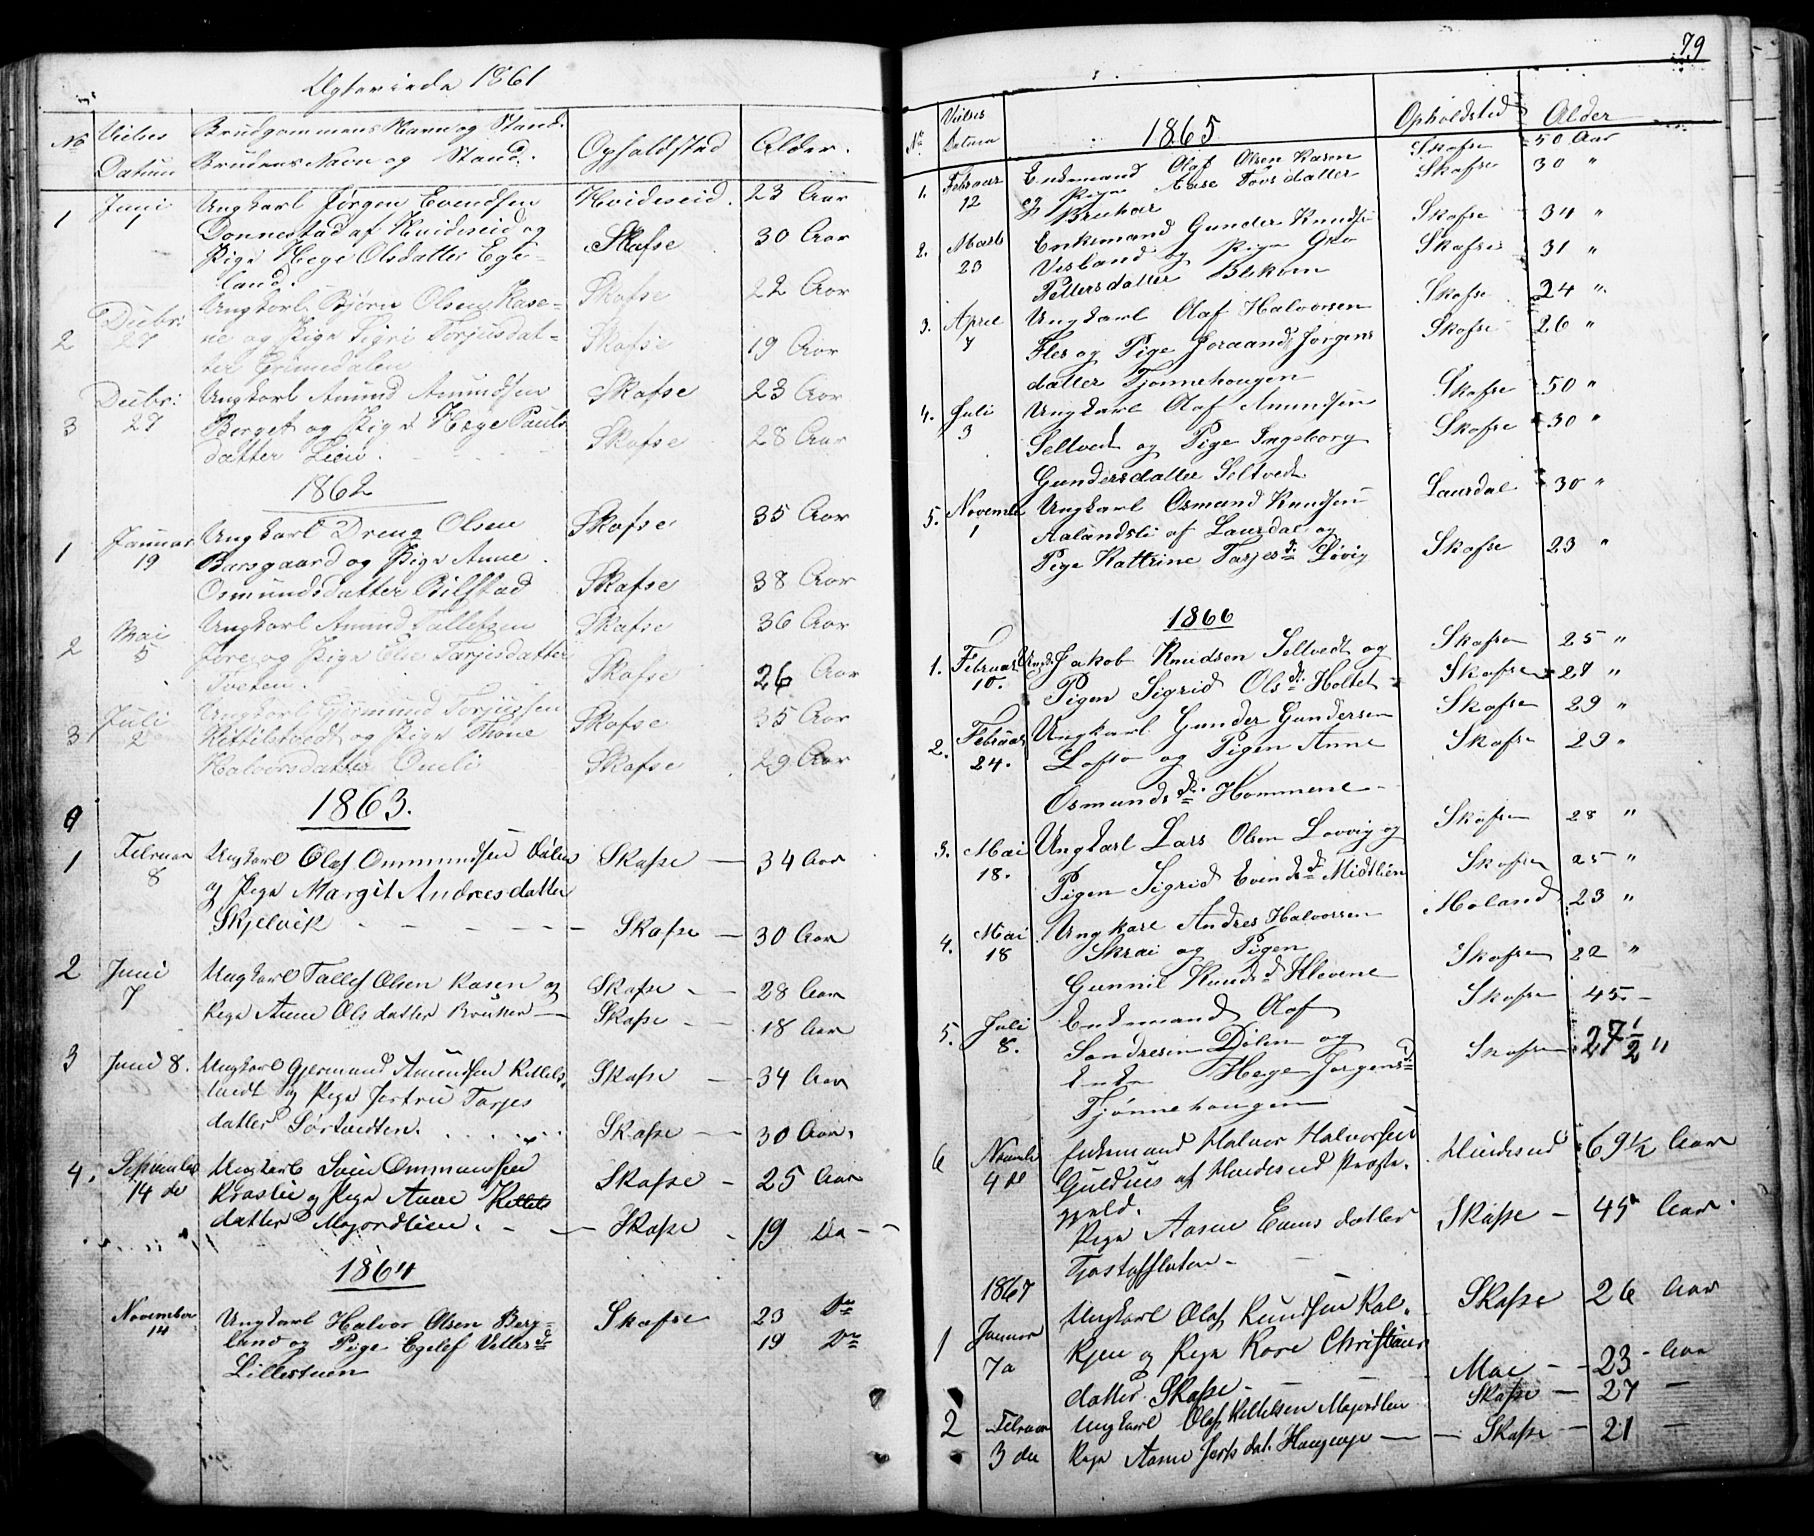 Egteviede 1861
No Vielses Datum
Brudgommens Navn og Stand.
Brudens Navn og Stand.
Opholdstad Alder.
1 Juni 1 Ungkarl Jørgen Evendsen Hvideseid. 23 Aar
Donnestad af Hvideseid og
Pige Hege Olsdatter Ege- Skafse 30 Aar
land.
2 Decbr: 27 Ungkarl Bjørn Olsen Kase- Skafse 22 Aar
ne og Pige Sigri Torjusdat- Skafse 19 Aar
ter Grimedalen
3 Decbr: 27 Ungkarl Amund Amundsen Skafse 23 Aar
Berget og Pige Hege Pauls Skafse 28 Aar
datter Lien.
1862
1 Januar 19 Ungkarl Dreng Olsen Skafse 35 Aar
Barsgaard og Pige Anne
Osmundsdatter Bilstad Skafse 38 Aar
2 Mai 5 Ungkarl Amund Tallefsen Skafse 36 Aar
Jore og Pige Else Tarjesdatter Skafse 26 Aar
Tveten.
3 Juli 2 Ungkarl Gjermund Torjussen Skafse 35 Aar
Kittilstvedt og Pige Thone
Halvorsdatter Omli Skafse 29 Aar
1863.
1 Februar 8 Ungkarl Olaf Ommundsen Dalen Skafse 34 Aar
og Pige Margit Andresdatter
Skjelvik Skafse 30 Aar
2 Juni 7 Ungkarl Tallef Olsen Kasen og Skafse 28 Aar
Pige Anne Olsdatter Skafse 18 Aar
3 Juni 8. Ungkarl Gjermund Amundsen Kittels Skafse 34 Aar
tvedt og Pige Jertru Tarjes
datter Sørtvedten. Skafse 30 Aar.
4. September 14 de Ungkarl Svein Ommundsen Skafse 25 Aar
og Pige Anne Kittels
datter Majordlien. Skafse 19 Do
1864
November 14 Ungkarl Halvor Olsen Berg- Skafse 23 Do
land og Pige Egelef Vetles D. 19 Do
Lillestuen
79
No Vielses Datum 1865 Opholdsted Alder
1. Februar 12 Enkemand Olaf Olsen Kasen Skafse 50 Aar
og Pige Aase Tovsdatter Skafse 30 "
Bruhar
2. Marts 23 Enkemand Gunder Knudsen Skafse 34 "
Vesland og Pige Gro Skafse 31 "
Pettersdatter
3. April 7 Ungkarl Olaf Halvorsen Skafse 24 "
Fles og Pige Joraand Jørgens Skafse 26 "
datter Tjønnehougen
4. Juli 3 Ungkarl Olaf Amundsen Skafse 50 "
Seltvedt og Pige Ingeborg Skafse 30 "
Gundersdatter Seltvedt
5. November 1 Ungkarl Osmund Knudsen Laurdal 30 "
Aalandsli af Laurdal og
Pige Kattrine Tarjes D. Løvig Skafse 23 "
1866
1. Februar 10. Ungk. Jakob Knudsen Seltvedt og Skafse 25 "
Pigen Sigrid Ols D. Holtet Skafse 27 "
2. Februar 24. Ungkarl Gunder Gundersen Skafse 29 "
Lofse og Pigen Anne Skafse 29 "
Osmunds D. Hommene
3. Mai 18. Ungkarl Lars Olsen Lovvig og Skafse 28 "
Pigen Sigrid Evinds D. Midtlien Skafse 25 "
4. Mai 18 Ungkarl Andres Halvorsen Moland 23 "
Skrai og Pigen
Gunnil Knuds D. Klevene Skafse 22 "
5. Juli 8. Enkemand Olaf Skafse 45
Sondresen Dølen og
Enke Hege Jørgens D. Skafse 27 1/2 "
Tjønnehougen
6 Novemb 4 de Enkemand Halvor Halvorsen Hvideseid 69 1/2 Aar
af Hvideseid Præste-
gjeld.
Pige Aasne Evensdatter Skafse 45 Aar.
Tjostofsfloten
1867
1 Januar 7a Ungkarl Olaf Knudsen Skafse 26 Aar
og Pige Kore Christians
datter Skafse Moe 23 Aar
2 Februar 3 de Ungkarl Olaf Kittelsen Majordlien Skafse 27
Pige Aasne dat. Skafse 21